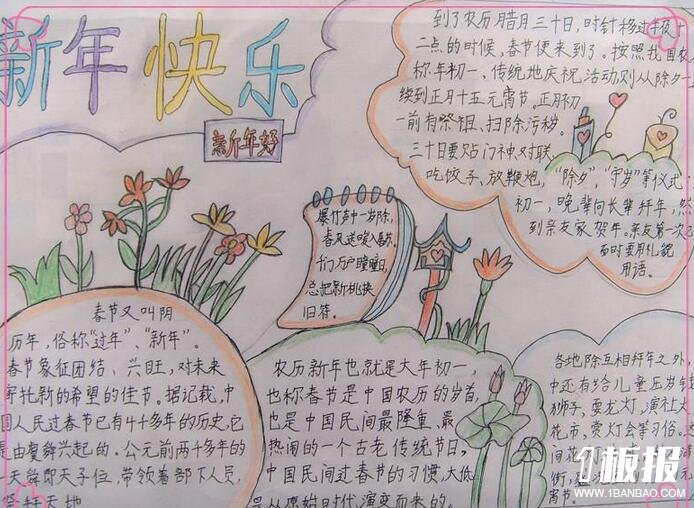 新年快乐
新年好
到了农历腊月三十日,时针移过半夜十
二点的时候,春节便来到了。按照我国农
称年初一、传统地庆祝活动则从除夕一
续到正月十五元宵节。正月初
一前有祭祖、扫除污秽。
三十日要贴门神对联
吃饺子,放鞭炮,“除夕”,“守岁”等仪式;
初一,晚辈向长辈拜年,然
到亲友家贺年。亲友第一次
面时要用礼貌
用语。
爆竹声中一岁除,
春风送暖入屠苏。
千门万户曈曈日,
总把新桃换
旧符。
春节又叫阴
历年,俗称“过年”、“新年”。
春节象征团结、兴旺,对未来
寄托新的希望的佳节。据记载,中
国人民过春节已有4千多年的历史,它
是由虞舜兴起的。公元前两千多年的
一天舜即天子位,带领着部下人员,
祭拜天地
农历新年也就是大年初一,
也称春节是中国农历的岁首,
也是中国民间最隆重、最
热闹的一个古老传统节日,
中国民间过春节的习惯,大低
是从原始时代演变而来的。
各地除互相拜年之外,
中还有给儿童压岁钱
狮子,耍龙灯,演社火
花市,赏灯会等习俗。
间花
街,
宵节。
1板报
WWW.1BANBAO.COM